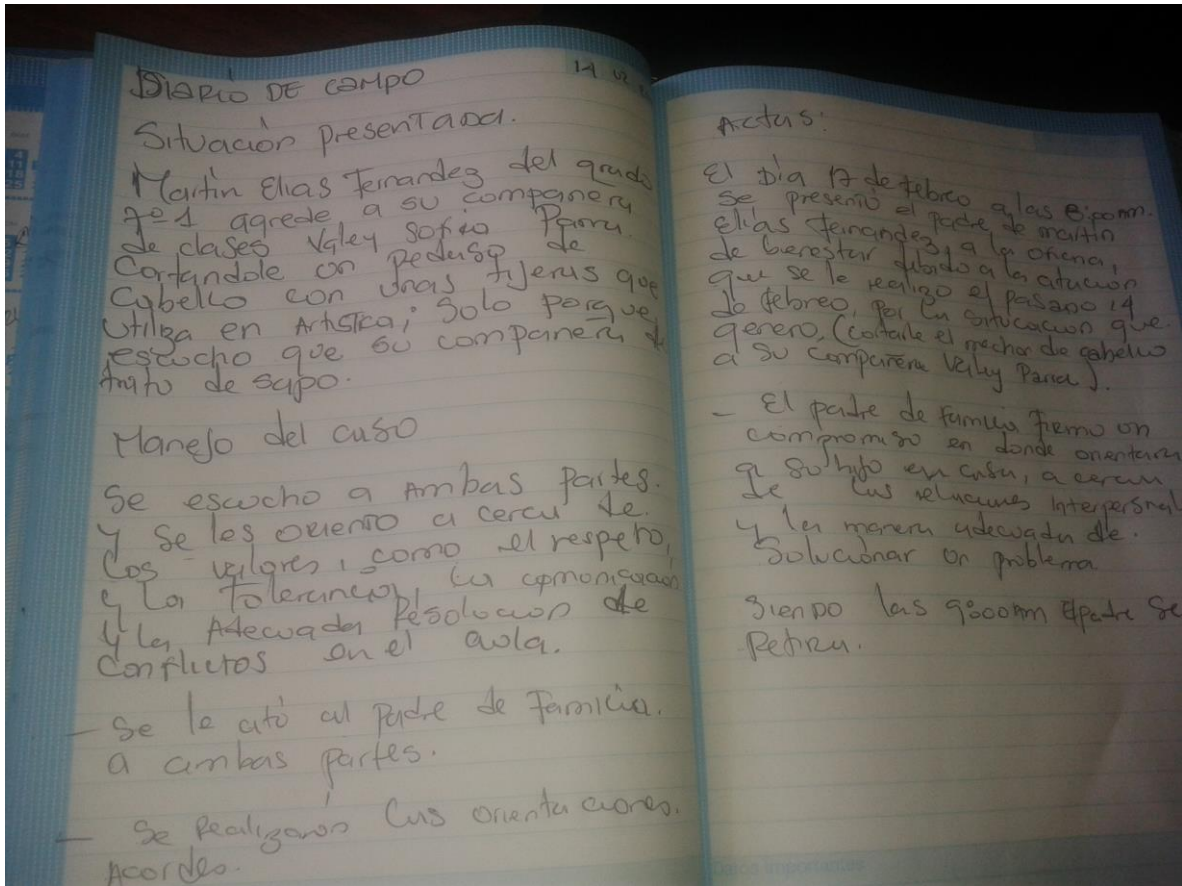 DIARIO DE CAMPO
14 02
Situación presentada.
Martin Elias Fernandez del grado
7º1 agrede, a su companera
de clases Valey Sofia Parra.
Cortandole un pedaso de
Cabello con unas tijeras que
utiliza en Artistica; Solo porque
escucho que su companera
trato de sapo.
Manejo del caso
Se escucho a Ambas partes.
y Se les oriento a cerca de.
Los valores, como el respeto,
y La Tolerancia, La comunicacion
y la Adecuada Resolucion de
Conflictos en el aula.
- Se le citó al padre de Familia.
a ambas partes.
- Se Realizaron las orientaciones.
Acordes.
Actas:
El Dia 17 de febrero a las 8:00am.
Se presento el padre de martin
Elias fernandez, a la oficina,
de bienestar debido a la citacion
que se le realizo el pasado 14
de febrero, por la situacion que.
genero, (Cortarle el mechon de cabello
a su compañera Valey Parra).
- El padre de familia firmo un
compromiso en donde orientara
a su hijo en casa, a cerca
de las relaciones interpersonal
y la manera adecuada de.
Solucionar un problema
Siendo las 9:00am El padre se
Retira.
Datos importantes